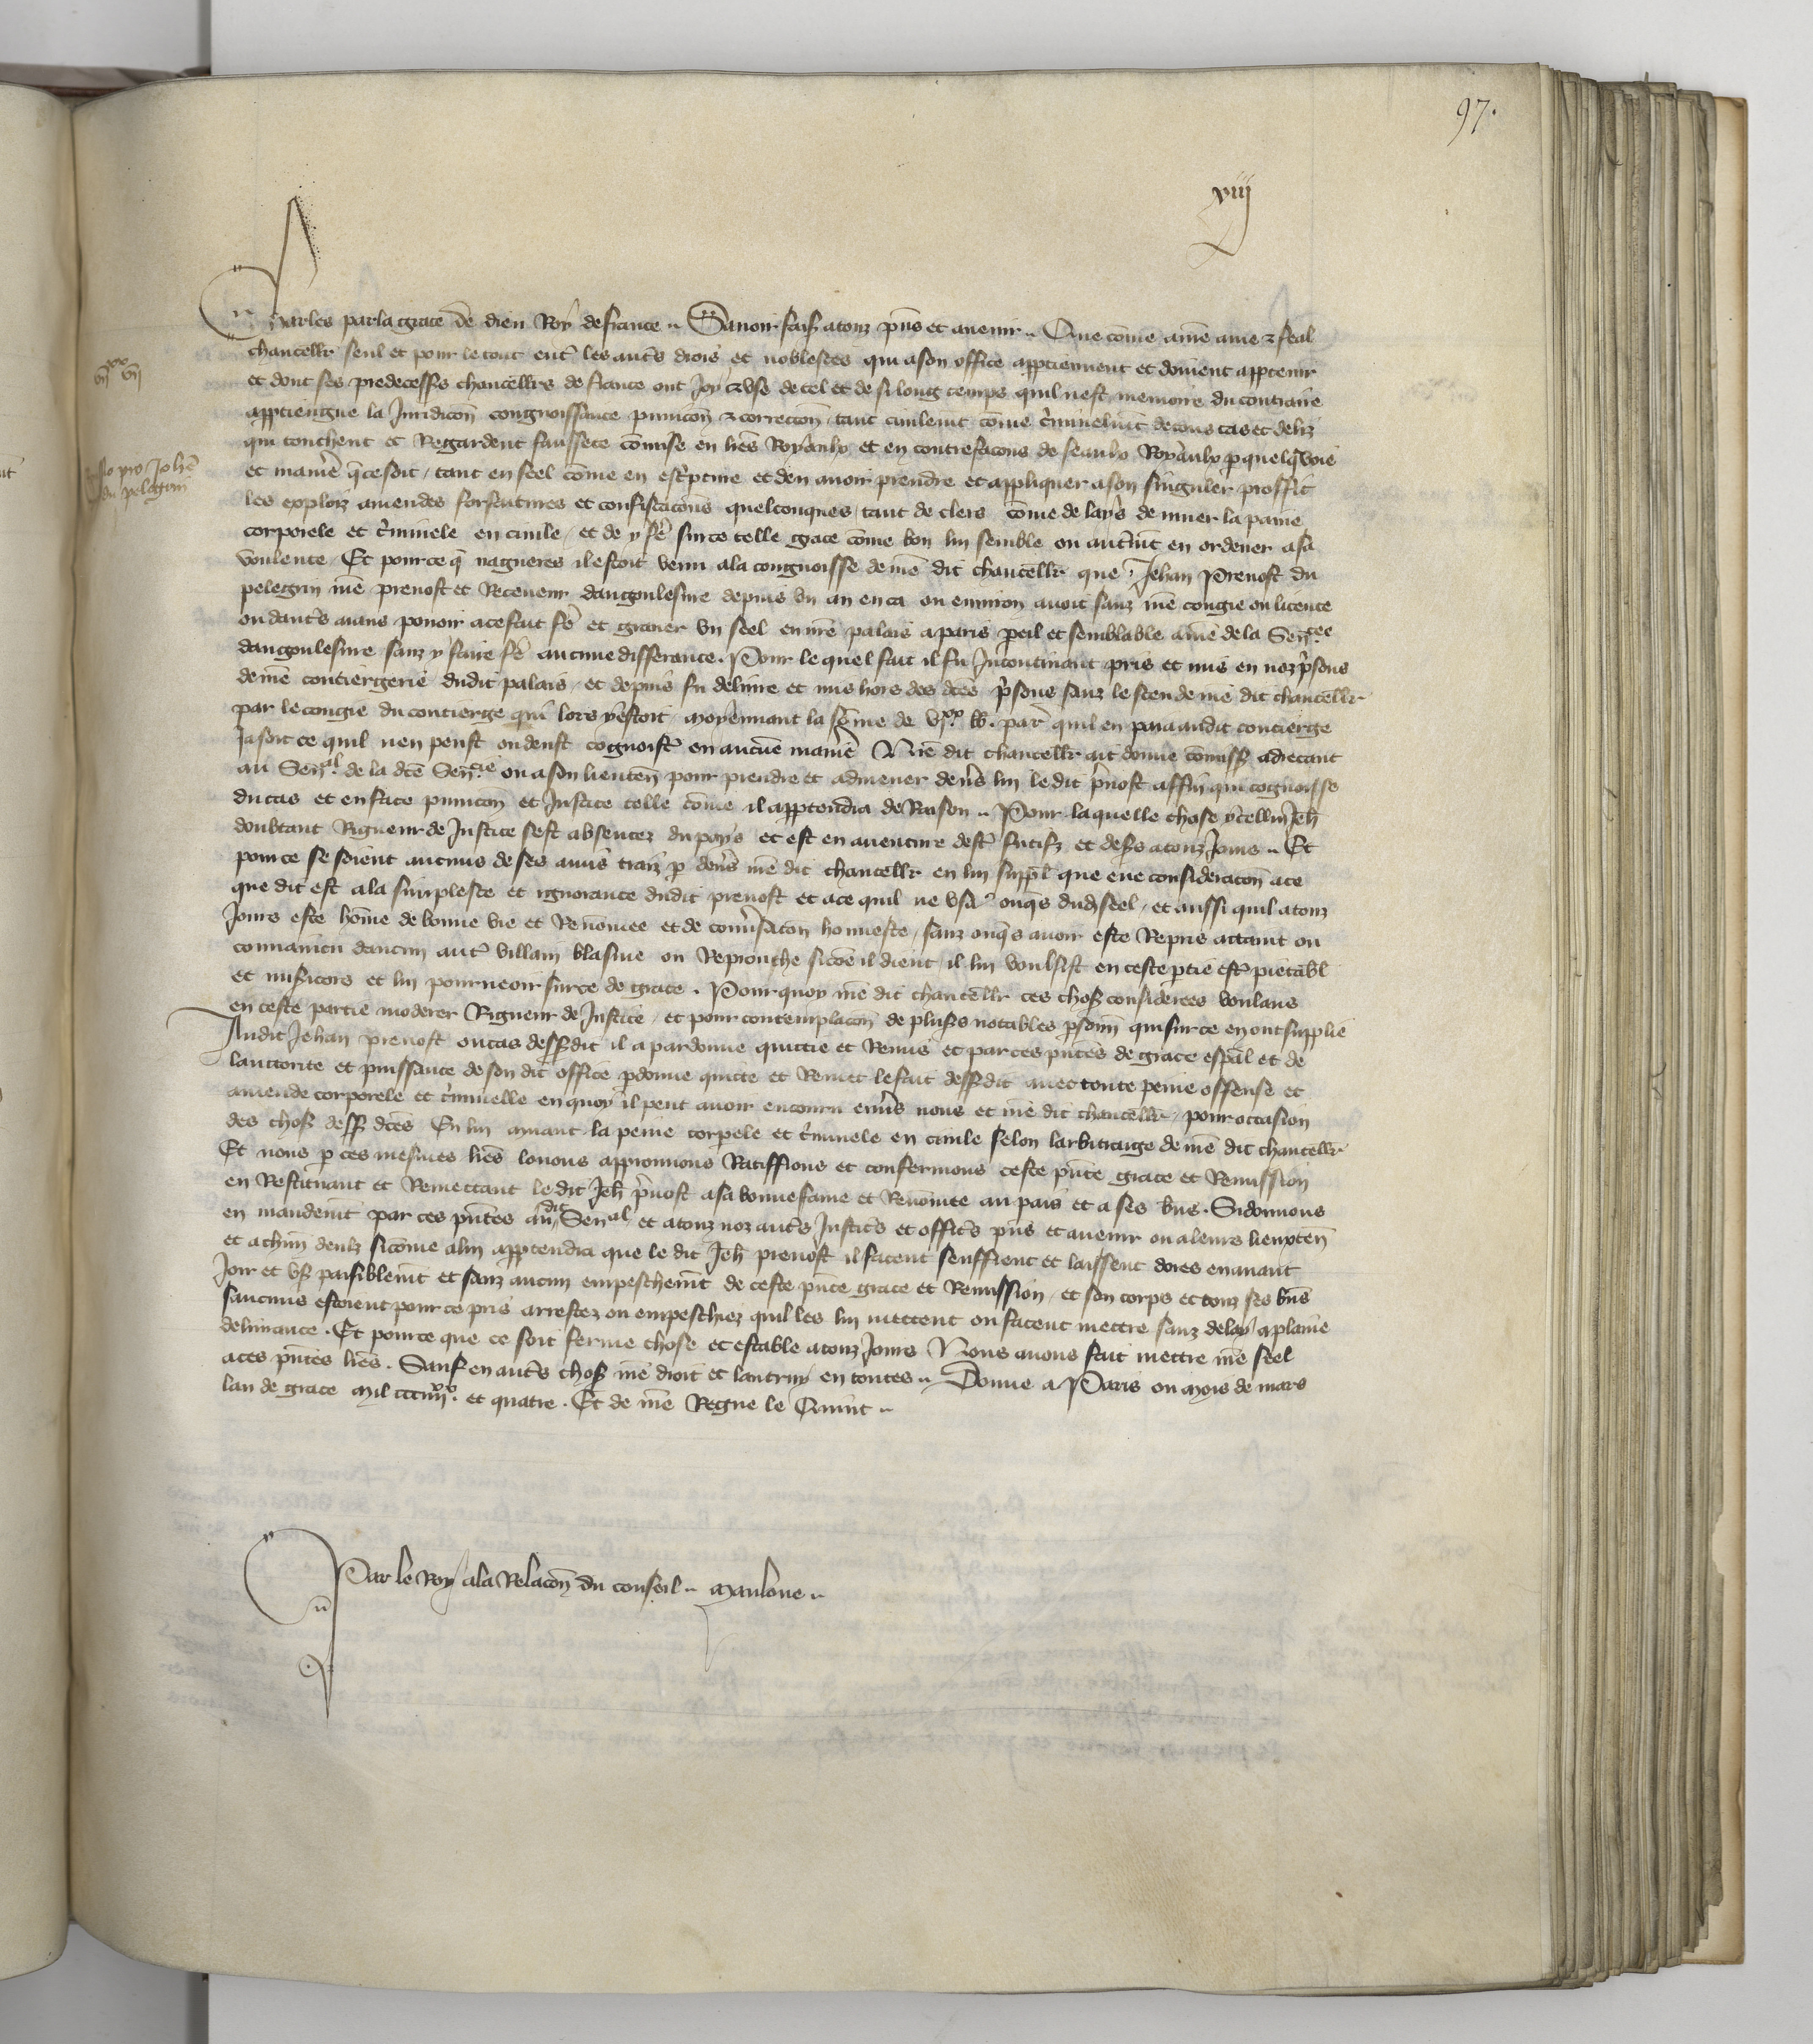 97.
xiij
Charles par la grace de dieu Roy de france .. Sauoir faiss a touz pñs et auenir .. Que cõme a nr̃e ame ⁊ feal
chancellr̃ seul et pour le tout entr̃ les autr̃s drois et noblesces qui a son office appartiennent et doiuent apptenir
et dont ses predecessrs chancellrs de france ont Joy ⁊ vse de tel et de si long temps quil nest memoire du contraire
vijxx vij
apptiengne la Juridicõn congnoissance punicõn ⁊ correctõn / tant ciuilemt cõme cr̃iminelmt de touz cas et deliz
qui touchent et Regardent faussete cõmise en lr̃es Royaulx et en contrefacons de seaulx Royaulx p quelq̃ voie
et maniẽ q̃ ce soit / tant en seel cõme en escr̃pture et den auoir prendre et appliquer a son singuler proffit
Rõ pro Johẽ
du pelegrin
les exploiz amendes forfaitures et confiscacõns quelconques / tant de clers cõme de lays de muer la paine
corporele et cr̃iminele en ciuile / et de y fẽ sur ce telle grace cõme bon lui semble ou autr̃mt en ordener a sa
voulente / Et pour ce q̃ nagueres il estoit venu a la congnoissẽ de nr̃e dit chancellr̃ que Jehan Preuost du
pelegrin nr̃e preuost et Receueur dangoulesme depuis vn an en ca ou enuiron auoit sanz nr̃e congie ou licence
ou dautr̃s aians pouoir a ce fait fẽ et grauer vn seel en nr̃e palais a paris peil et semblable a nr̃e de la Senee
dangoulesme sanz y faire fẽ aucune difference . Pour le quel fait il fu Jncontinant pris et mis en noz p̃sons
de nr̃e conciergerie dudit palais / et depuis fu deliure et mis hors des dc̃es p̃sons sanz le sceu de nr̃e dit chancellr̃
par le congie du concierge qui lors y estoit / moyennant la sõme de vjxx ll. par̃ quil en paia audit concierge
Ja soit ce quil nen peust ou deust cognoistr̃ en aucũe maniẽ Nr̃e dit chancellr̃ ait donne cõmiss̃ adrecant
au Senal de la dc̃e Senee ou a son lieuteñ pour prendre et admener deuers lui le dit p̃uost affin qui cognoisse
du cas et en face punicõn et Justice telle cõme il apptendra de Raison .. Pour laquelle chose ycelluj Jeh̃
doubtant Rigueur de Justice sest absentez du pays et est en auenture destr̃ fuitifz et desers a touz Jours .. Et
pour ce se soient aucuns de ses amis traiz p deuers nr̃e dit chancellr̃ en lui suppl̃ que eue consideracõn a ce
que dit est a la simplesce et ignorance dudit preuost et a ce quil ne vsa onq̃s dud̃ seel / et aussi quil a touz
Jours este hõme de bonne vie et Renõmee et de conuersacõn honneste / sanz onq̃s auoir este Repris attaint ou
conuaincu daucun autr̃ villain blasme ou Reprouche si cõe il dient / il lui voulsist en ceste ptie estr̃ pietabl̃
et misericors et lui pourueoir sur ce de grace . Pour quoy nr̃e dit chancellr̃ ces choss considerees voulans
en ceste partie moderer Rigueur de Justice / et pour contemplacõn de plusrs notables psoñn qui sur ce en ont supplie
Audit Jehan preuost ou cas dessusdit il a pardonne quictie et Remis et par ces pñtes de grace esp̃al et de
lauctorite et puissance de son dit office pdonne quicte et Remet le fait dessusdit auec toute peine offense et
amende corporele et cr̃iminelle en quoy il peut auoir encouru enuers nous et nr̃e dit chancellr̃ / pour occasion
des choss dess dc̃es En lui muant la peine corpele et cr̃iminele en ciuile selon larbitraige de nr̃e dit chancellr̃
Et nous p ces mesmes lr̃es louons approuuons Ratiffions et confermons ceste pñte grace et Remission
en Restituant et Remettant le dit Jeh̃ p̃uost a sa bonne fame et Renõmee au pais et a ses bñs . Si donnons
en mandemt par ces pñtes audit Senal et a touz noz autr̃s Justic̃s et offic̃s pñs et auenir ou a leurs lieuxteñ
et a chũn deulx si cõme a lui apptendra que le dit Jeh̃ preuost il facent seuffrent et laissent dores enauant
Joir et vss paisiblemt et sanz aucun empeschemt de ceste pñte grace et Remission / et son corps et touz ses bñs
saucuns estoient pour ce pris arrestez ou empeschiez quil les lui mettent ou facent mettre sanz delay a plaine
deliurance . Et pour ce que ce soit ferme chose et estable a touz Jours Nous auons fait mettre nr̃e seel
a ces pñtes lr̃es . Sauf en autr̃s choss nr̃e droit et lautruy en toutes .. Donne a Paris ou mois de mars
lan de grace mil ccc iiijxx . et quatre . Et de nr̃e Regne le Quint ..
Par le Roy a la Relacõn du conseil .. Mauloue ..